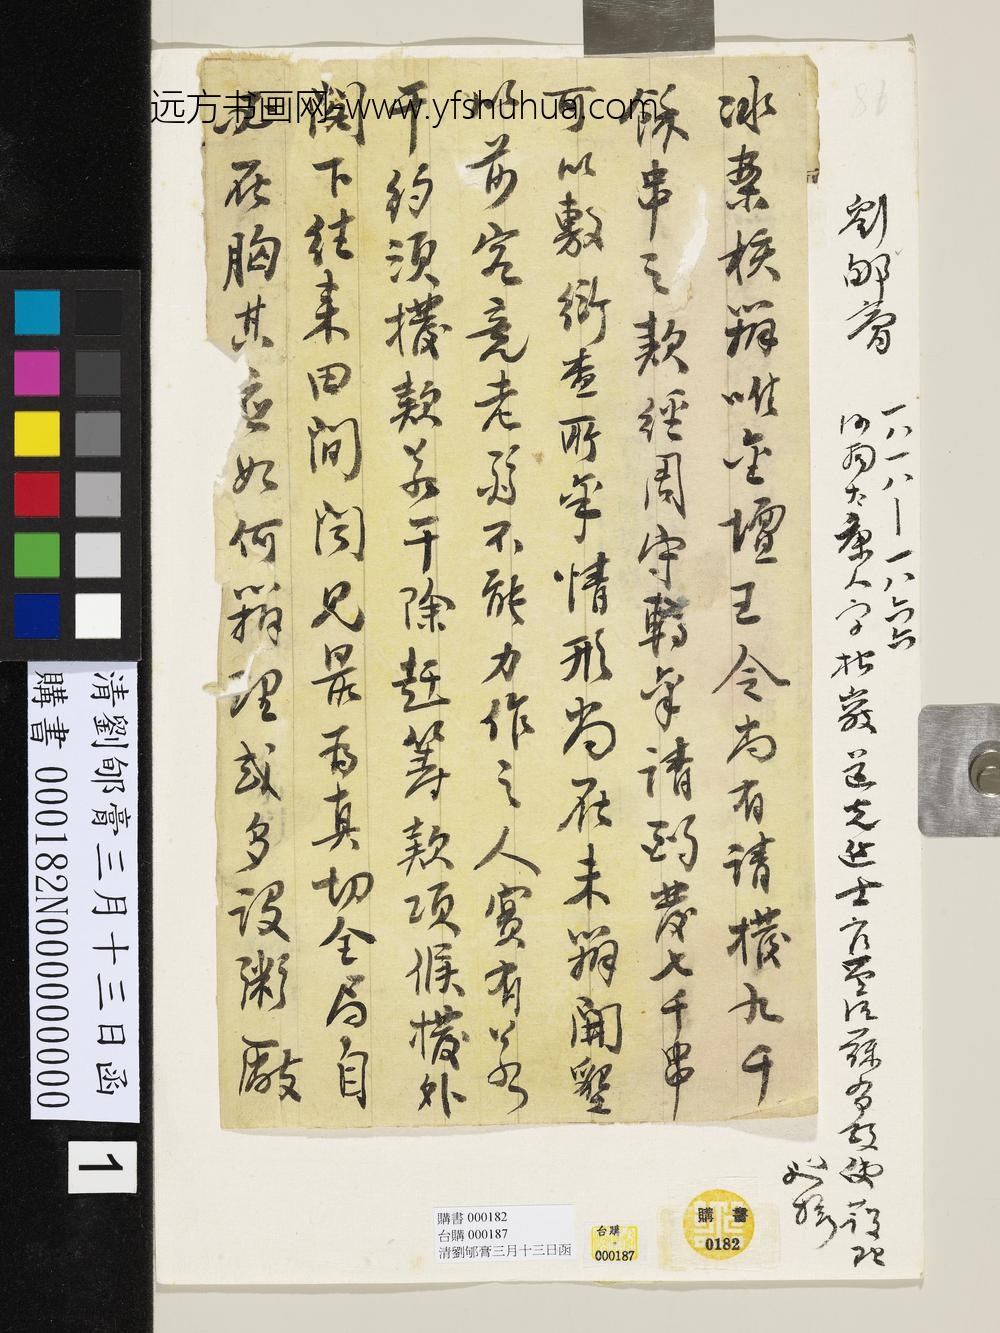 劉郇膏
一八一八—一八六六
河南太康人字松巖道光進士官至江蘇布政使護理
巡撫
冰案核辦唯金壇王令尚有請撥九千
餘串之款經周守轉稟請酌發七千串
可以敷衍查所稟情形尚在未辦開墾
以前究竟老弱不能力作之人實有若
干約須撥款若干除趕籌款項候撥外
閣下往來田間閱見最為真切全局自
必在胸其應如何辦理或多設粥廠
远方书画网 www.yfshuhua.com
清劉郇膏三月十三日函
購書 000182N000000000
1
購書 000182
台購 000187
清劉郇膏三月十三日函
台購
000187
購 書
0182